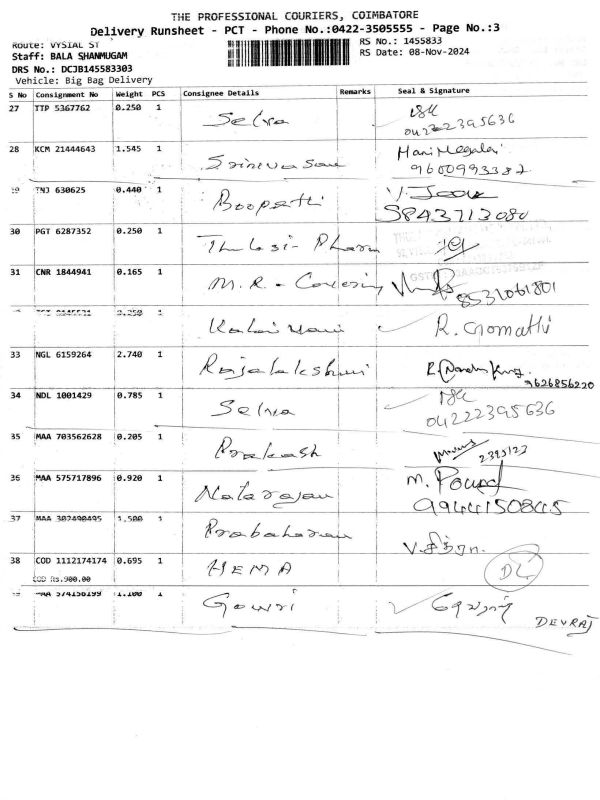 THE PROFESSIONAL COURIERS, COIMBATORE
Delivery Runsheet - PCT - Phone No.:0422-3505555 - Page No.:3
Route: VYSIAL ST
RS No.: 1455833
Staff: BALA SHANMUGAM
RS Date: 08-Nov-2024
DRS No.: DCJB145583303
Vehicle: Big Bag Delivery
S No Consignment No Weight PCS Consignee Details Remarks Seal & Signature
27 TTP 5367762 0.250 1 Selva
04222395636
28 KCM 21444643 1.545 1 Srinivasan Mani Megalai
9600993382
29 TNJ 630625 0.440 1 Boopathi
9843713080
30 PGT 6287352 0.250 1 Thulasi - Pharm
31 CNR 1844941 0.165 1 M.R - Covering
8531061801
Kalai Vani R. Gomathi
33 NGL 6159264 2.740 1 Rajalakshmi
9626856220
34 NDL 1001429 0.785 1 Selva
04222395636
35 MAA 703562628 0.205 1 Prakash
2395123
36 MAA 575717896 0.920 1 Natarajan M.
9944150845
37 MAA 302490495 1.500 1 Prabaharan V.சித்ரா.
38 COD 1112174174 0.695 1 HEMA DL
COD Rs.900.00
MAA 574156199 1.100 1 Gowri
DEVRAJ